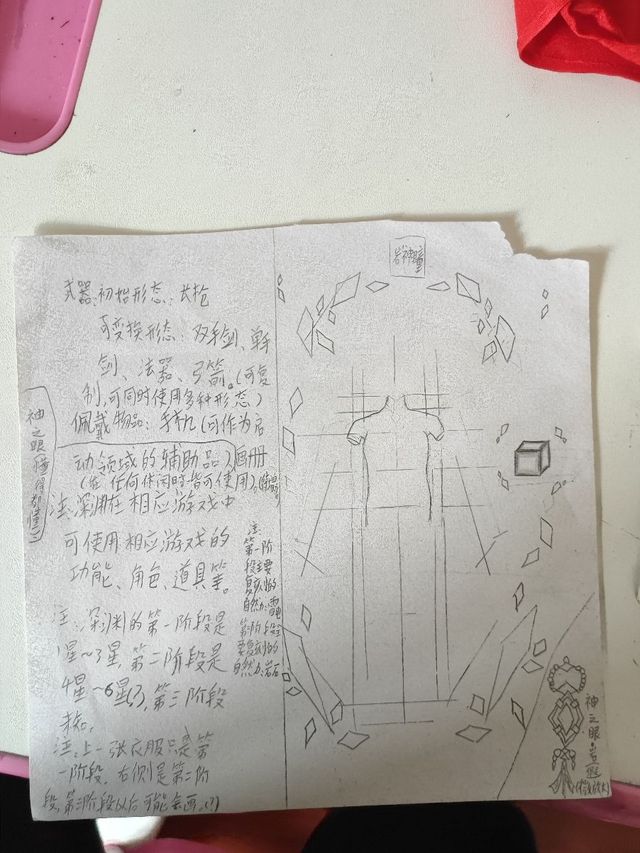 武器:初始形态:长枪
可变换形态:双手剑、单手
剑、法器、弓箭。(可复
制,可同时使用多种形态)
佩戴物品:手机(可作为启
动领域的辅助品)画册
(在任何休闲时皆可使用)
注:深渊在相应游戏中
可使用相应游戏的
功能、角色、道具等。
注:深渊的第一阶段是
1星~3星,第二阶段是
4星~6星(?),第三阶段
未知。
注:上一张衣服只是第
一阶段,右侧是第二阶
段,第三阶段以后可能会画。(?)
神之眼(懂得都懂)
注:
第一阶
段主要
复刻的
自然力:雷
第二阶段主
要复刻的
自然力:岩石
岩神瞳
神之眼·岩
(稍微放大)